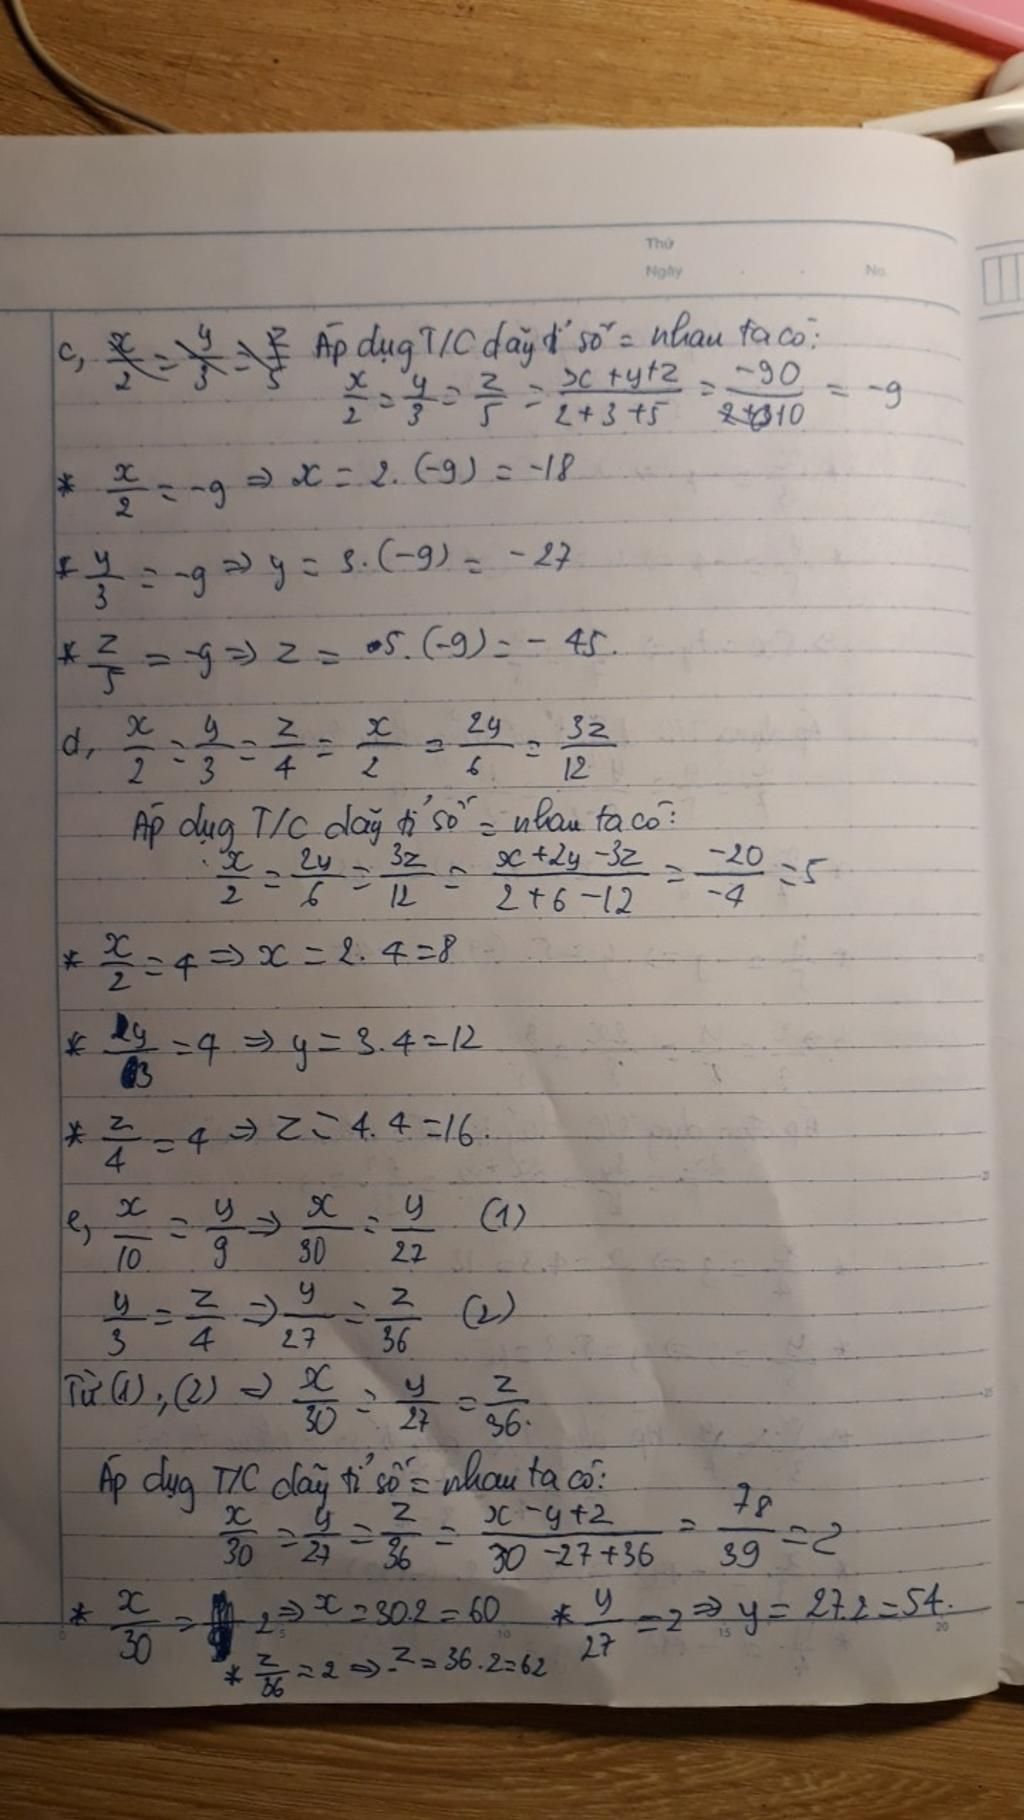 Thứ
Ngày . . No.
c, x/2 = y/3 = z/5 Áp dụg T/C dãy tỉ số = nhau ta có:
x/2 = y/3 = z/5 = (x+y+z)/(2+3+5) = -90/10 = -9
* x/2 = -9 ⇒ x = 2.(-9) = -18
* y/3 = -9 ⇒ y = 3.(-9) = -27
* z/5 = -9 ⇒ z = 5.(-9) = -45.
d, x/2 = y/3 = z/4 = x/2 = 2y/6 = 3z/12
Áp dụg T/C dãy tỉ số = nhau ta có:
x/2 = 2y/6 = 3z/12 = (x+2y-3z)/(2+6-12) = -20/-4 = 5
* x/2 = 4 ⇒ x = 2.4 = 8
* 2y/3 = 4 ⇒ y = 3.4 = 12
* z/4 = 4 ⇒ z = 4.4 = 16.
e, x/10 = y/9 ⇒ x/30 = y/27 (1)
y/3 = z/4 ⇒ y/27 = z/36 (2)
Từ (1), (2) ⇒ x/30 = y/27 = z/36.
Áp dụg T/C dãy tỉ số = nhau ta có:
x/30 = y/27 = z/36 = (x-y+z)/(30-27+36) = 78/39 = 2
* x/30 = 2 ⇒ x = 30.2 = 60 * y/27 = 2 ⇒ y = 27.2 = 54.
* z/36 = 2 ⇒ z = 36.2 = 62
0 5 10 15 20